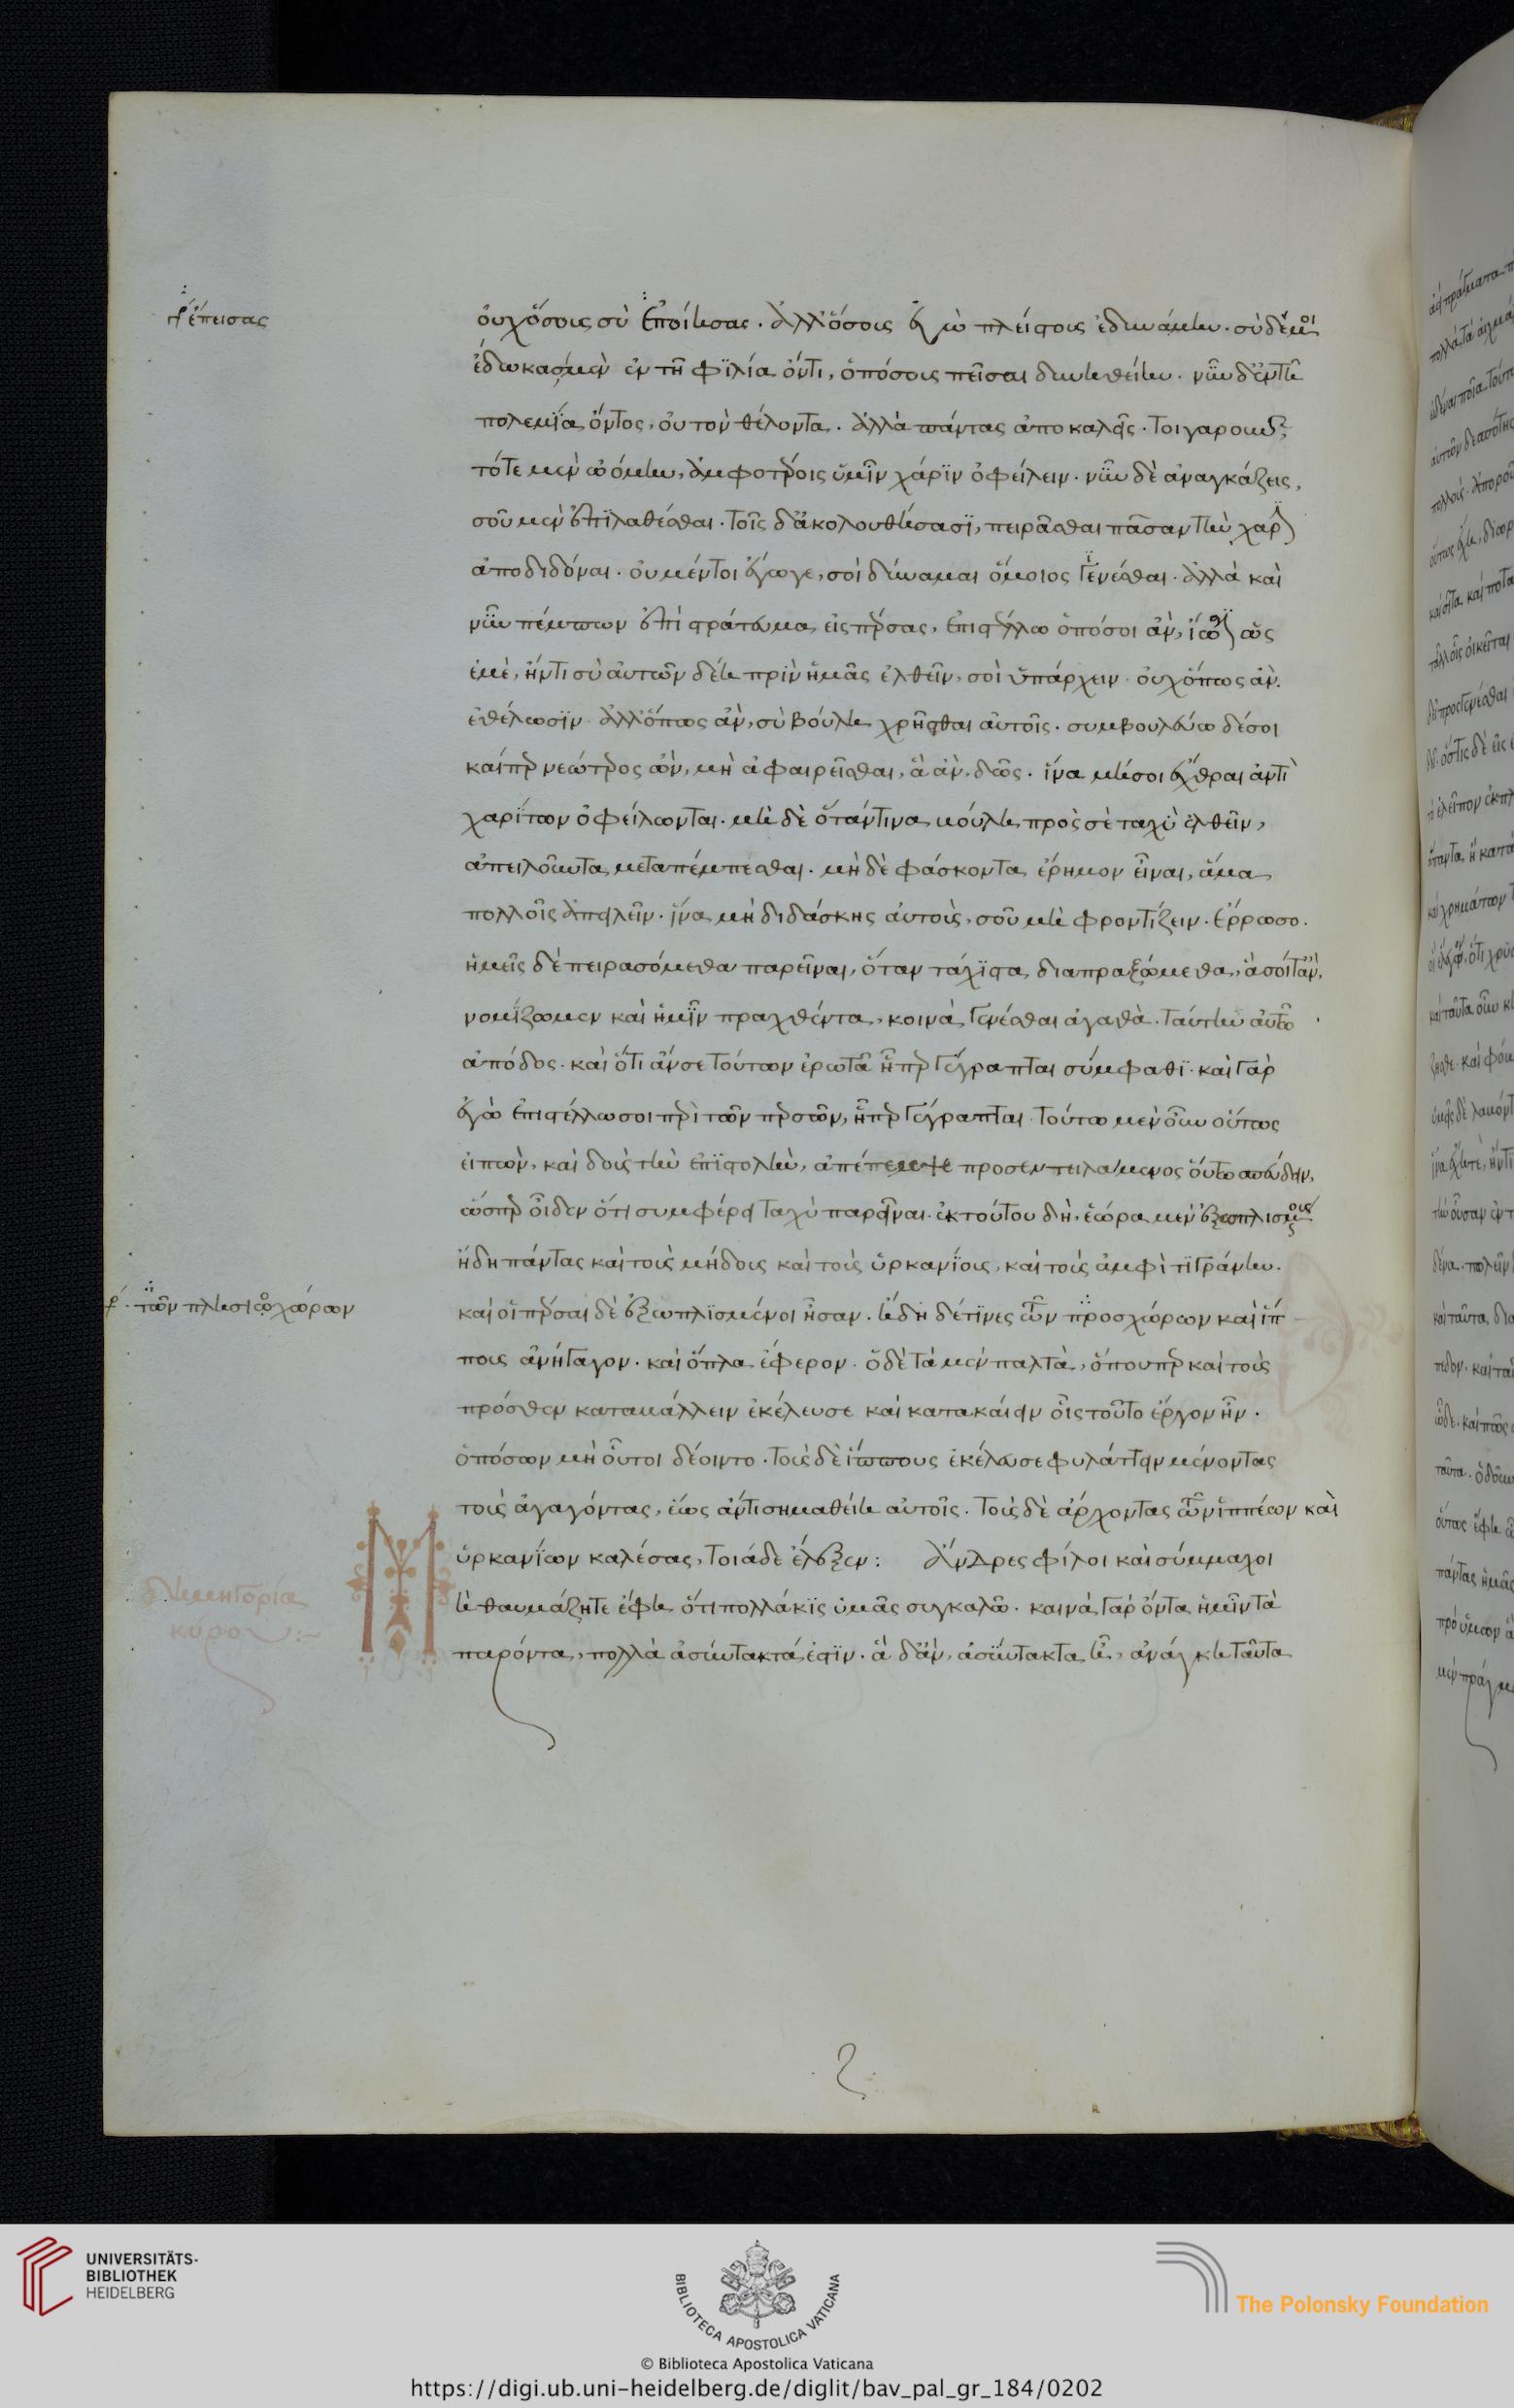 γρ ἔπεισας
οὐχ ὅσοις σὺ ἐποίησας. ἀλλ' ὅσοις ἐγὼ πλείστοις ἐδυνάμην. σὺ δέ μοί
ἔδωκας μὲν ἐν τῆ φϊλία ὄντι, ὁπόσοις πεῖσαι δυνηθείην. νῦν δ' ἐν τῆ
πολεμΐα ὄντος, οὐ τὸν θέλοντα. ἀλλὰ πάντας ἀποκαλεῖς. τοιγαροῦν
τότε μὲν ὠόμην, ἀμφοτέροις ὑμῖν χάρϊν ὀφείλειν. νῦν δὲ ἀναγκάζεις,
σοῦ μὲν ἐπϊλαθέσθαι. τοῖς δ' ἀκολουθήσασϊ, πειρᾶσθαι πᾶσαν τὴν χάριν
ἀποδιδόναι. οὐ μέντοι ἔγωγε, σοὶ δύναμαι ὅμοιος γενέσθαι. ἀλλὰ καὶ
νῦν πέμπων ἐπὶ στράτευμα εἰς πέρσας, ἐπιστέλλω ὁπόσοι ἂν, ἴωσϊν ὡς
ἐμὲ, ἤν τι σὺ αὐτῶν δέη πρὶν ἡμᾶς ἐλθεῖν, σοὶ ὑπάρχειν οὐχ ὅπως ἂν.
ἐθέλωσϊν ἀλλ' ὅπως ἂν, σὺ βούλη χρῆσθαι αὐτοῖς. συμβουλεύω δέ σοι
καίπερ νεώτερος ὢν, μὴ ἀφαιρεῖσθαι, ἃ ἂν, δῶς. ἵνα μή σοι ἔχθραι ἀντὶ
χαρίτων ὀφείλωνται. μὴ δὲ ὅταν τινα βούλη πρὸς σὲ ταχὺ ἐλθεῖν,
ἀπειλοῦντα μεταπέμπεσθαι. μὴ δὲ φάσκοντα ἔρημον εἶναι, ἅμα
πολλοῖς ἀπειλεῖν. ἵνα μὴ διδάσκης αὐτοὺς, σοῦ μὴ φροντίζειν. ἔρρωσο.
ἡμεῖς δὲ πειρασόμεθα παρεῖναι, ὅταν τάχϊστα διαπραξώμεθα, ἃ σοί τ' ἂν,
νομίζωμεν καὶ ἡμῖν πραχθέντα, κοινὰ γενέσθαι ἀγαθὰ. ταύτην αὐτῶ
ἀπόδος. καὶ ὅτι ἄν σε τούτων ἐρωτᾶ ἧπερ γέγραπται σύμφαθϊ. καὶ γὰρ
ἐγὼ ἐπιστέλλω σοι περὶ τῶν περσῶν, ἧπερ γέγραπται. τούτω μὲν οὖν οὕτως
εἰπὼν, καὶ δοὺς τὴν ἐπϊστολὴν, ἀπέπεμψε προσεντειλάμενος οὕτω σπεύδειν,
ὥσπερ οἶδεν ὅτι συμφέρει ταχὺ παρεῖναι. ἐκ τούτου δὴ, ἑώρα μὲν ἐξωπλισμένους
ἤδη πάντας καὶ τοὺς μήδους καὶ τοὺς ὑρκανΐους, καὶ τοὺς ἀμφὶ τϊγράνην.
γρ. τῶν πλησιοχώρων
καὶ οἱ πέρσαι δὲ ἐξωπλϊσμένοι ἦσαν. ἤδη δέ τϊνες τῶν προσχώρων καὶ ἵπ
πους ἀνήγαγον. καὶ ὅπλα ἔφερον. ὁ δὲ τὰ μὲν παλτὰ, ὅπουπερ καὶ τοὺς
πρόσθεν καταβάλλειν ἐκέλευσε καὶ κατακαίειν οἷς τοῦτο ἔργον ἦν.
ὁπόσων μὴ οὗτοι δέοιντο. τοὺς δὲ ἵππους ἐκέλευσε φυλάττειν μένοντας
τοὺς ἀγαγόντας, ἕως ἄν τι σημαθείη αὐτοῖς. τοὺς δὲ ἄρχοντας τῶν ἱππέων καὶ
ὑρκανΐων καλέσας, τοιάδε ἔλεξεν: Ἄνδρες φίλοι καὶ σύμμαχοι
Δημηγορία
κύρου:~
Μὴ θαυμάζητε ἔφη ὅτι πολλάκϊς ὑμᾶς συγκαλῶ. καινὰ γὰρ ὄντα ἡμῖν τὰ
παρόντα, πολλὰ ἀσύντακτά ἐστϊν. ἃ δ' ἂν, ἀσύντακτα ἦ, ἀνάγκη ταῦτα
UNIVERSITÄTS-
BIBLIOTHEK
HEIDELBERG
BIBLIOTECA APOSTOLICA VATICANA
The Polonsky Foundation
© Biblioteca Apostolica Vaticana
https://digi.ub.uni-heidelberg.de/diglit/bav_pal_gr_184/0202